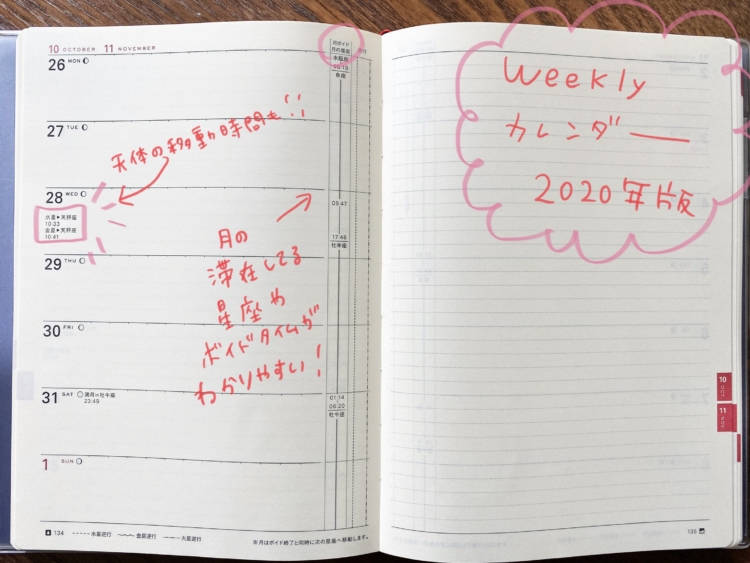 10 OCTOBER 11 NOVEMBER
月ボイド
月の星座
水瓶座
06:19
魚座
26 MON
27 TUE
天体の移動時間も!!
28 WED
水星▶天秤座
10:33
金星▶天秤座
10:41
05:47
17:46
牡羊座
29 THU
月の
滞在してる
星座や
ボイドタイムが
わかりやすい!
30 FRI
31 SAT 満月=牡牛座
23:49
01:14
06:20
牡牛座
1 SUN
134 水星逆行 金星逆行 火星逆行
※月はボイド終了と同時に次の星座へ移動します。
Weekly
カレンダー
2020年版
10 OCT
11 NOV
135